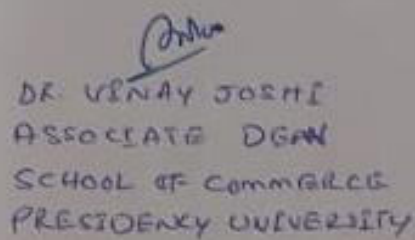 DR. VINAY JOSHI
ASSOCIATE DEAN
SCHOOL OF COMMERCE
PRESIDENCY UNIVERSITY